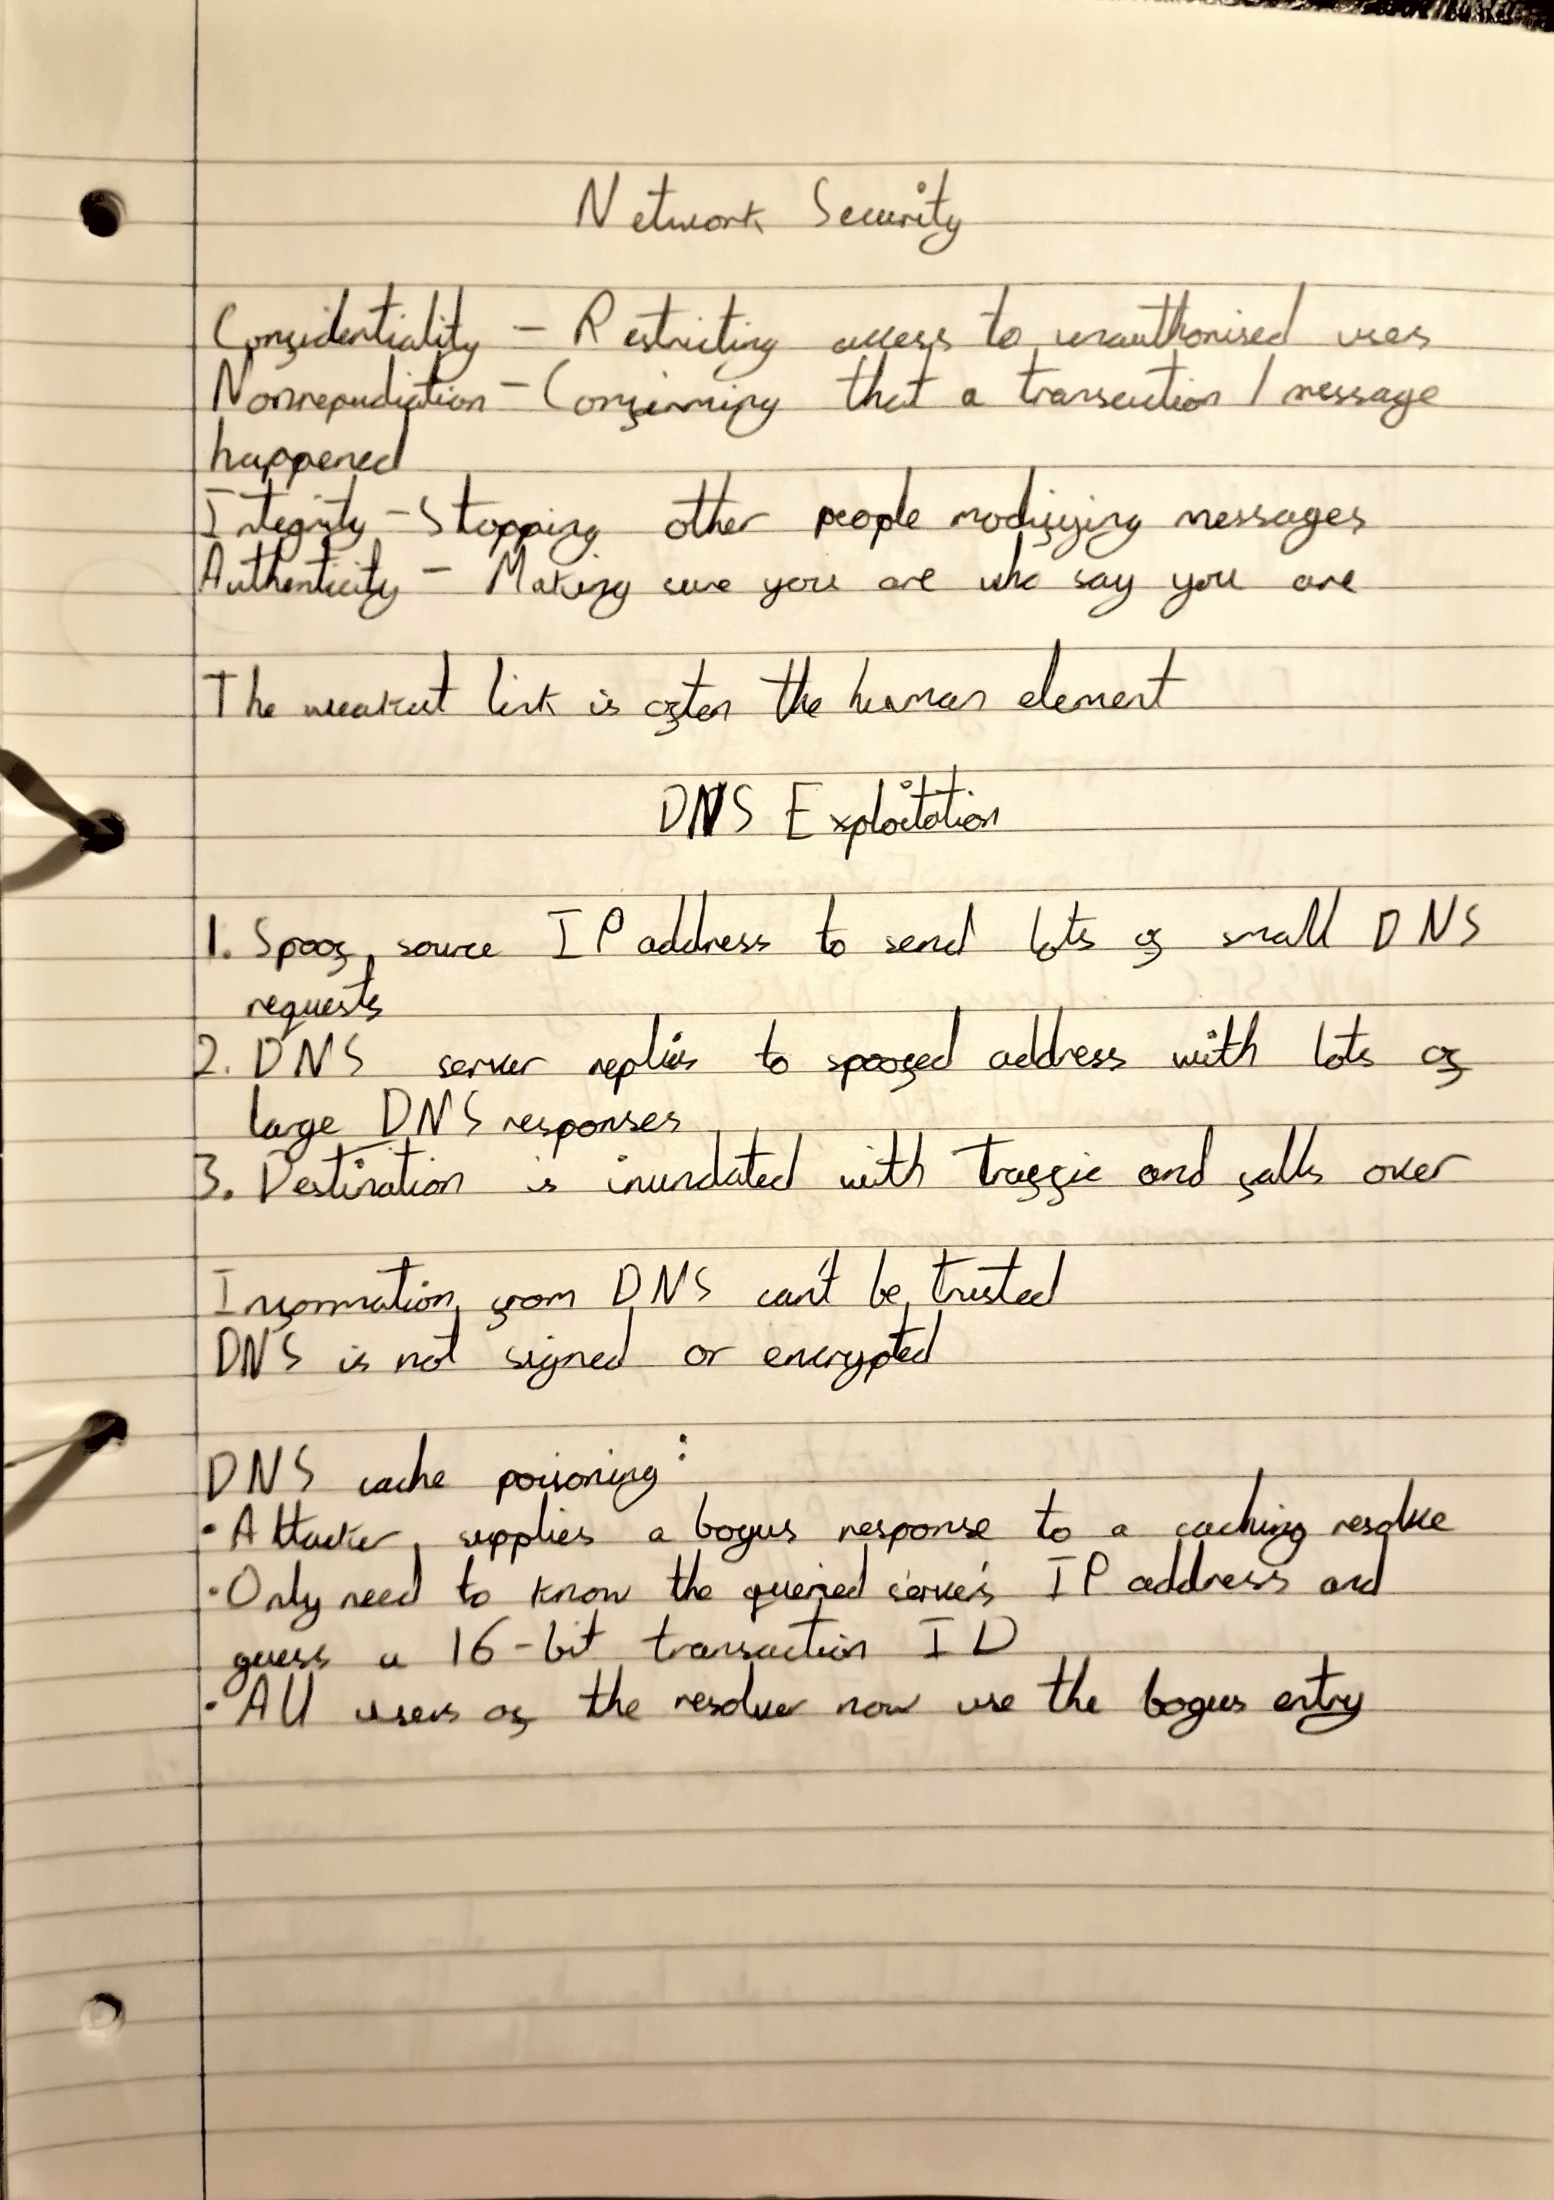 Network Security
Confidentiality - Restricting access to unauthorised uses
Nonrepudiation - Confirming that a transaction / message
happened
Integrity - Stopping other people modifying messages
Authenticity - Making sure you are who say you are
The weakest link is often the human element
DNS Exploitation
1. Spoof source IP address to send lots of small DNS
requests
2. DNS server replies to spoofed address with lots of
large DNS responses
3. Destination is inundated with traffic and falls over
Information from DNS can't be trusted
DNS is not signed or encrypted
DNS cache poisoning:
• Attacker supplies a bogus response to a caching resolve
• Only need to know the queried server's IP address and
guess a 16-bit transaction ID
• All users of the resolver now use the bogus entry